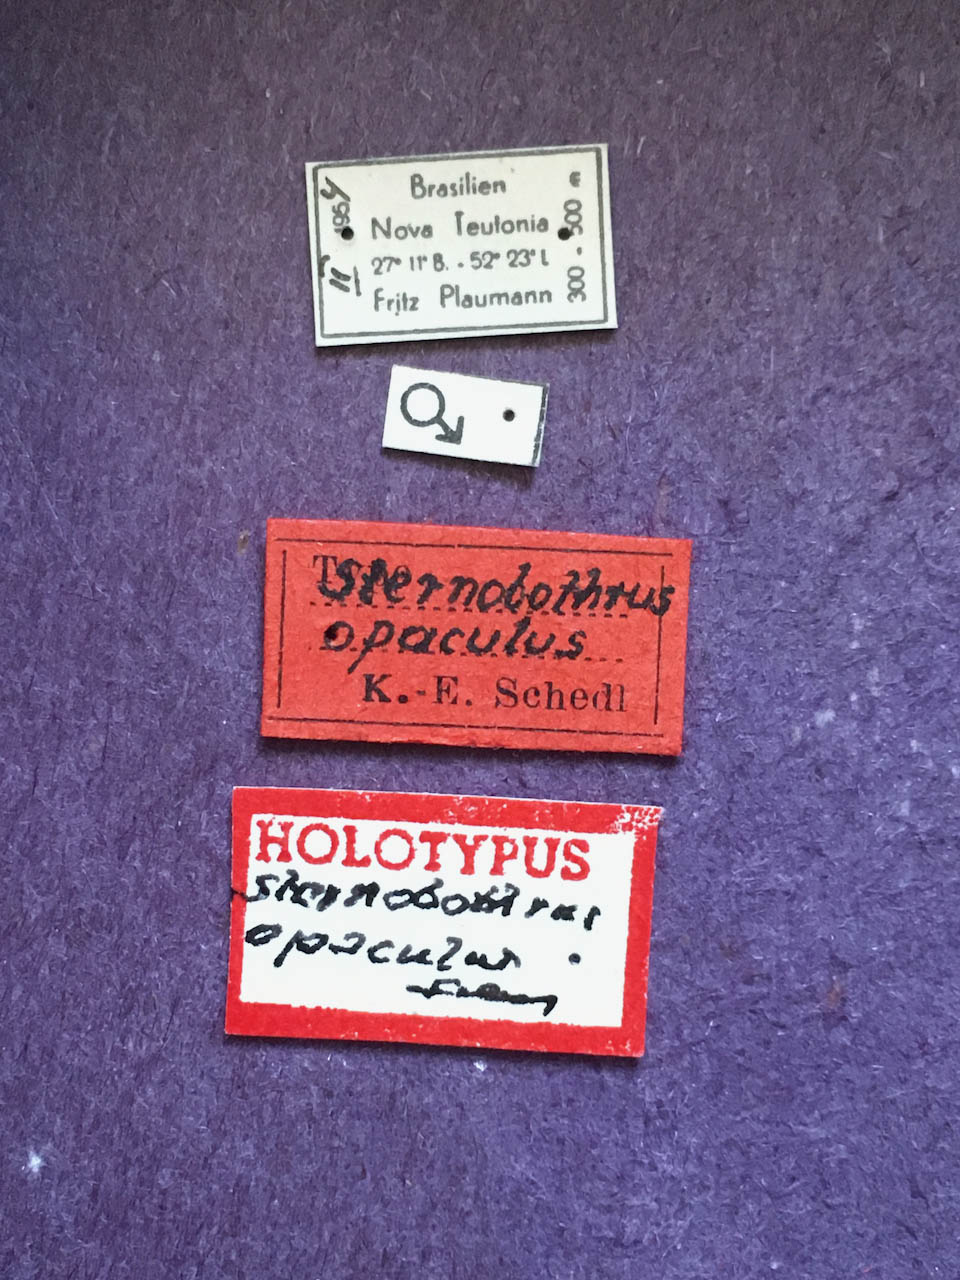 Brasilien
Nova Teutonia
27° 11' B. - 52° 23' L
Fritz Plaumann
II 1954
300 - 500 m
♂
Sternobothrus
opaculus
K. E. Schedl
HOLOTYPUS
Sternobothrus
opaculus